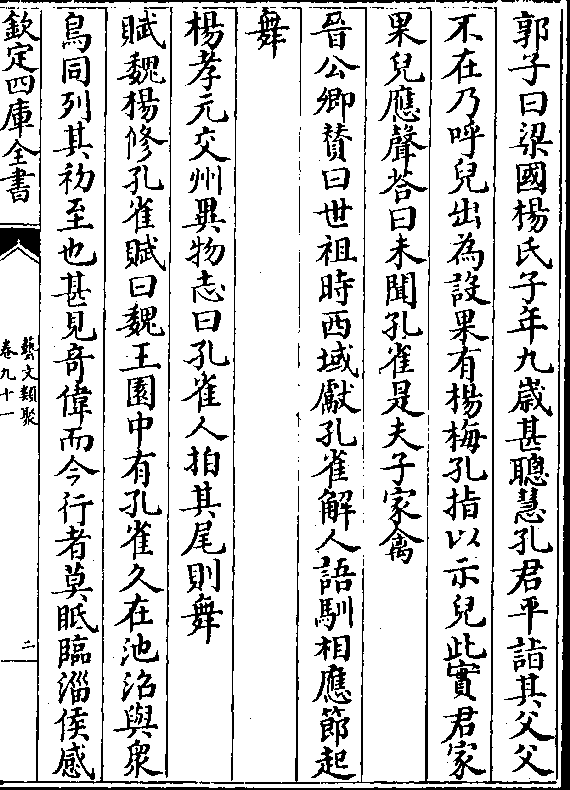 郭子曰梁國楊氏子年九歳甚聰慧孔君平詣其父父
不在乃呼兒出為設果有楊梅孔指以示兒此實君家
果兒應聲荅曰未聞孔雀是夫子家禽
晉公卿賛曰世祖時西域獻孔雀解人語馴相應節起
舞
楊孝元交州異物志曰孔雀人拍其尾則舞
賦魏楊修孔雀賦曰魏王園中有孔雀久在池沼與衆
鳥同列其初至也甚見奇偉而今行者莫眡臨淄侯感
欽定四庫全書
藝文類聚
卷九十一
二